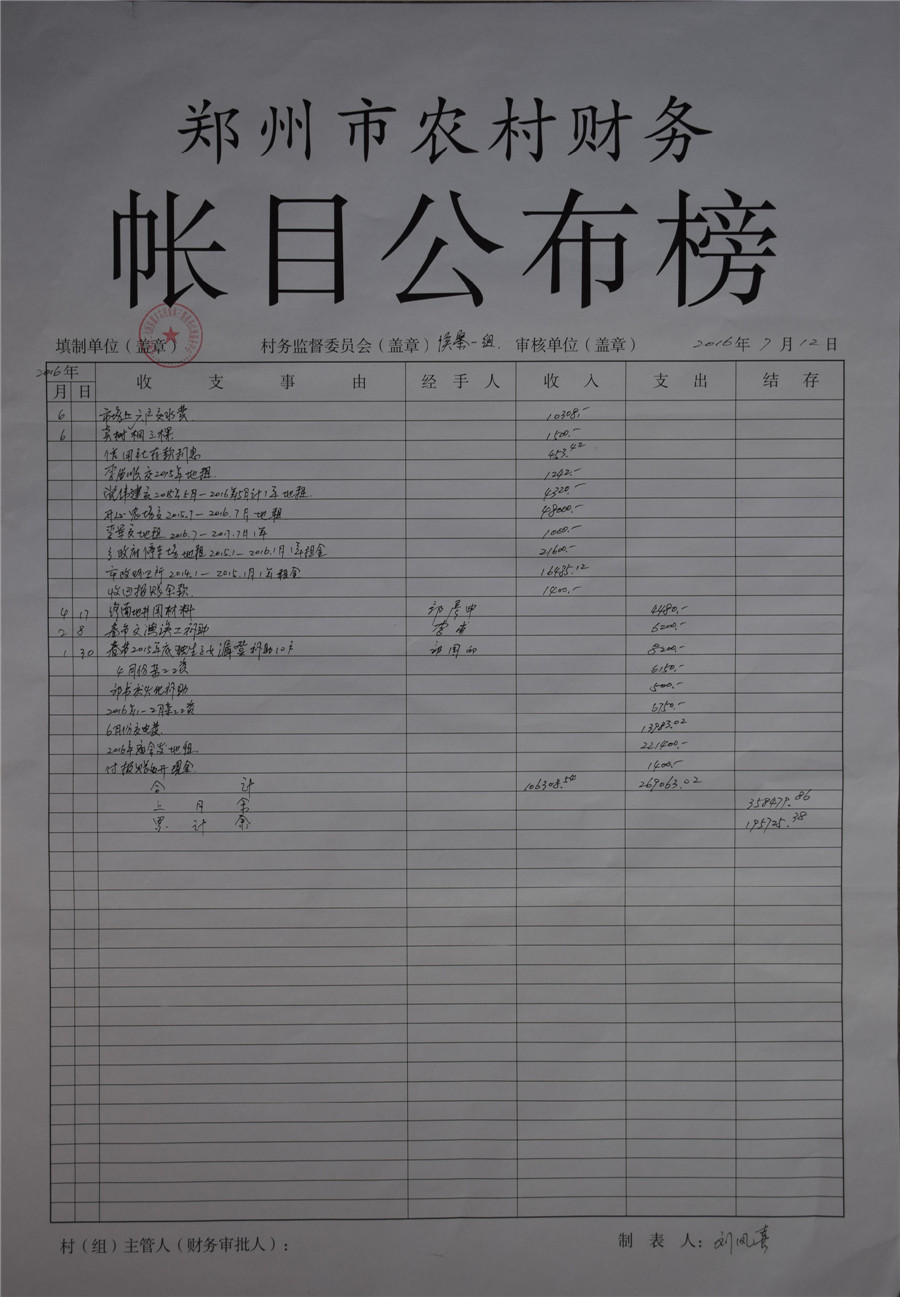 郑州市农村财务
帐目公布榜
填制单位(盖章) 村务监督委员会(盖章) 侯寨一组 审核单位(盖章) 2016年7月12日
2016年
月 日 收支事由 经手人 收入 支出 结存
6 交水费 10308.-
6 卖树桐三棵 1500.-
信用社存款利息 453.42
交2015年地租 1242.-
2015年5月-2016年5月计1年地租 4320.-
农场交2015.7-2016.7月地租 48000.-
交地租2016.7-2017.7月1年 1000.-
乡政府停车场地租2015.1-2016.1月1年租金 21600.-
2014.1-2015.1月1年租金 16485.12
收回报账余款 1400.-
4 17 井用材料 4480.-
2 8 春节 补助 6200.-
1 30 春节2015年底独生子女 补助10户 8200.-
4月份 工资 6150.-
火化补助 500.-
2016年1-2月 工资 6750.-
6月份交电费 13983.02
2016年 地租 221400.-
付报账 现金 1400.-
合计 106308.54 269063.02
上月余 358479.86
累计余 195725.38
村(组)主管人(财务审批人): 制表人: 刘凤喜